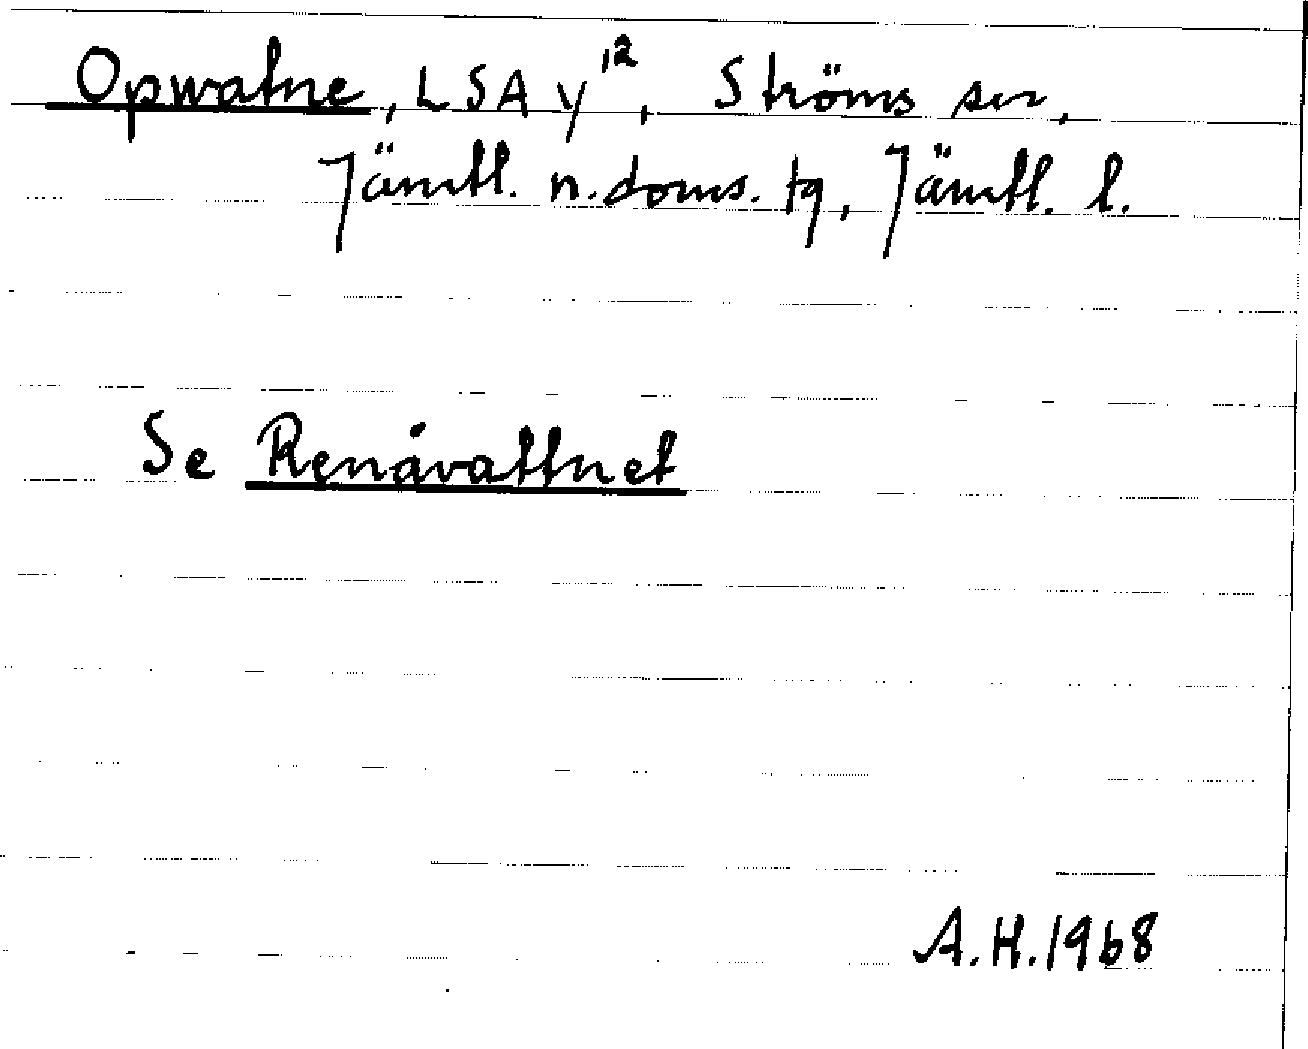 Opwatne, LSA y¹², Ströms sn,
Jämtl. n. doms. tg, Jämtl. l.
Se Renåvattnet
A.H. 1968